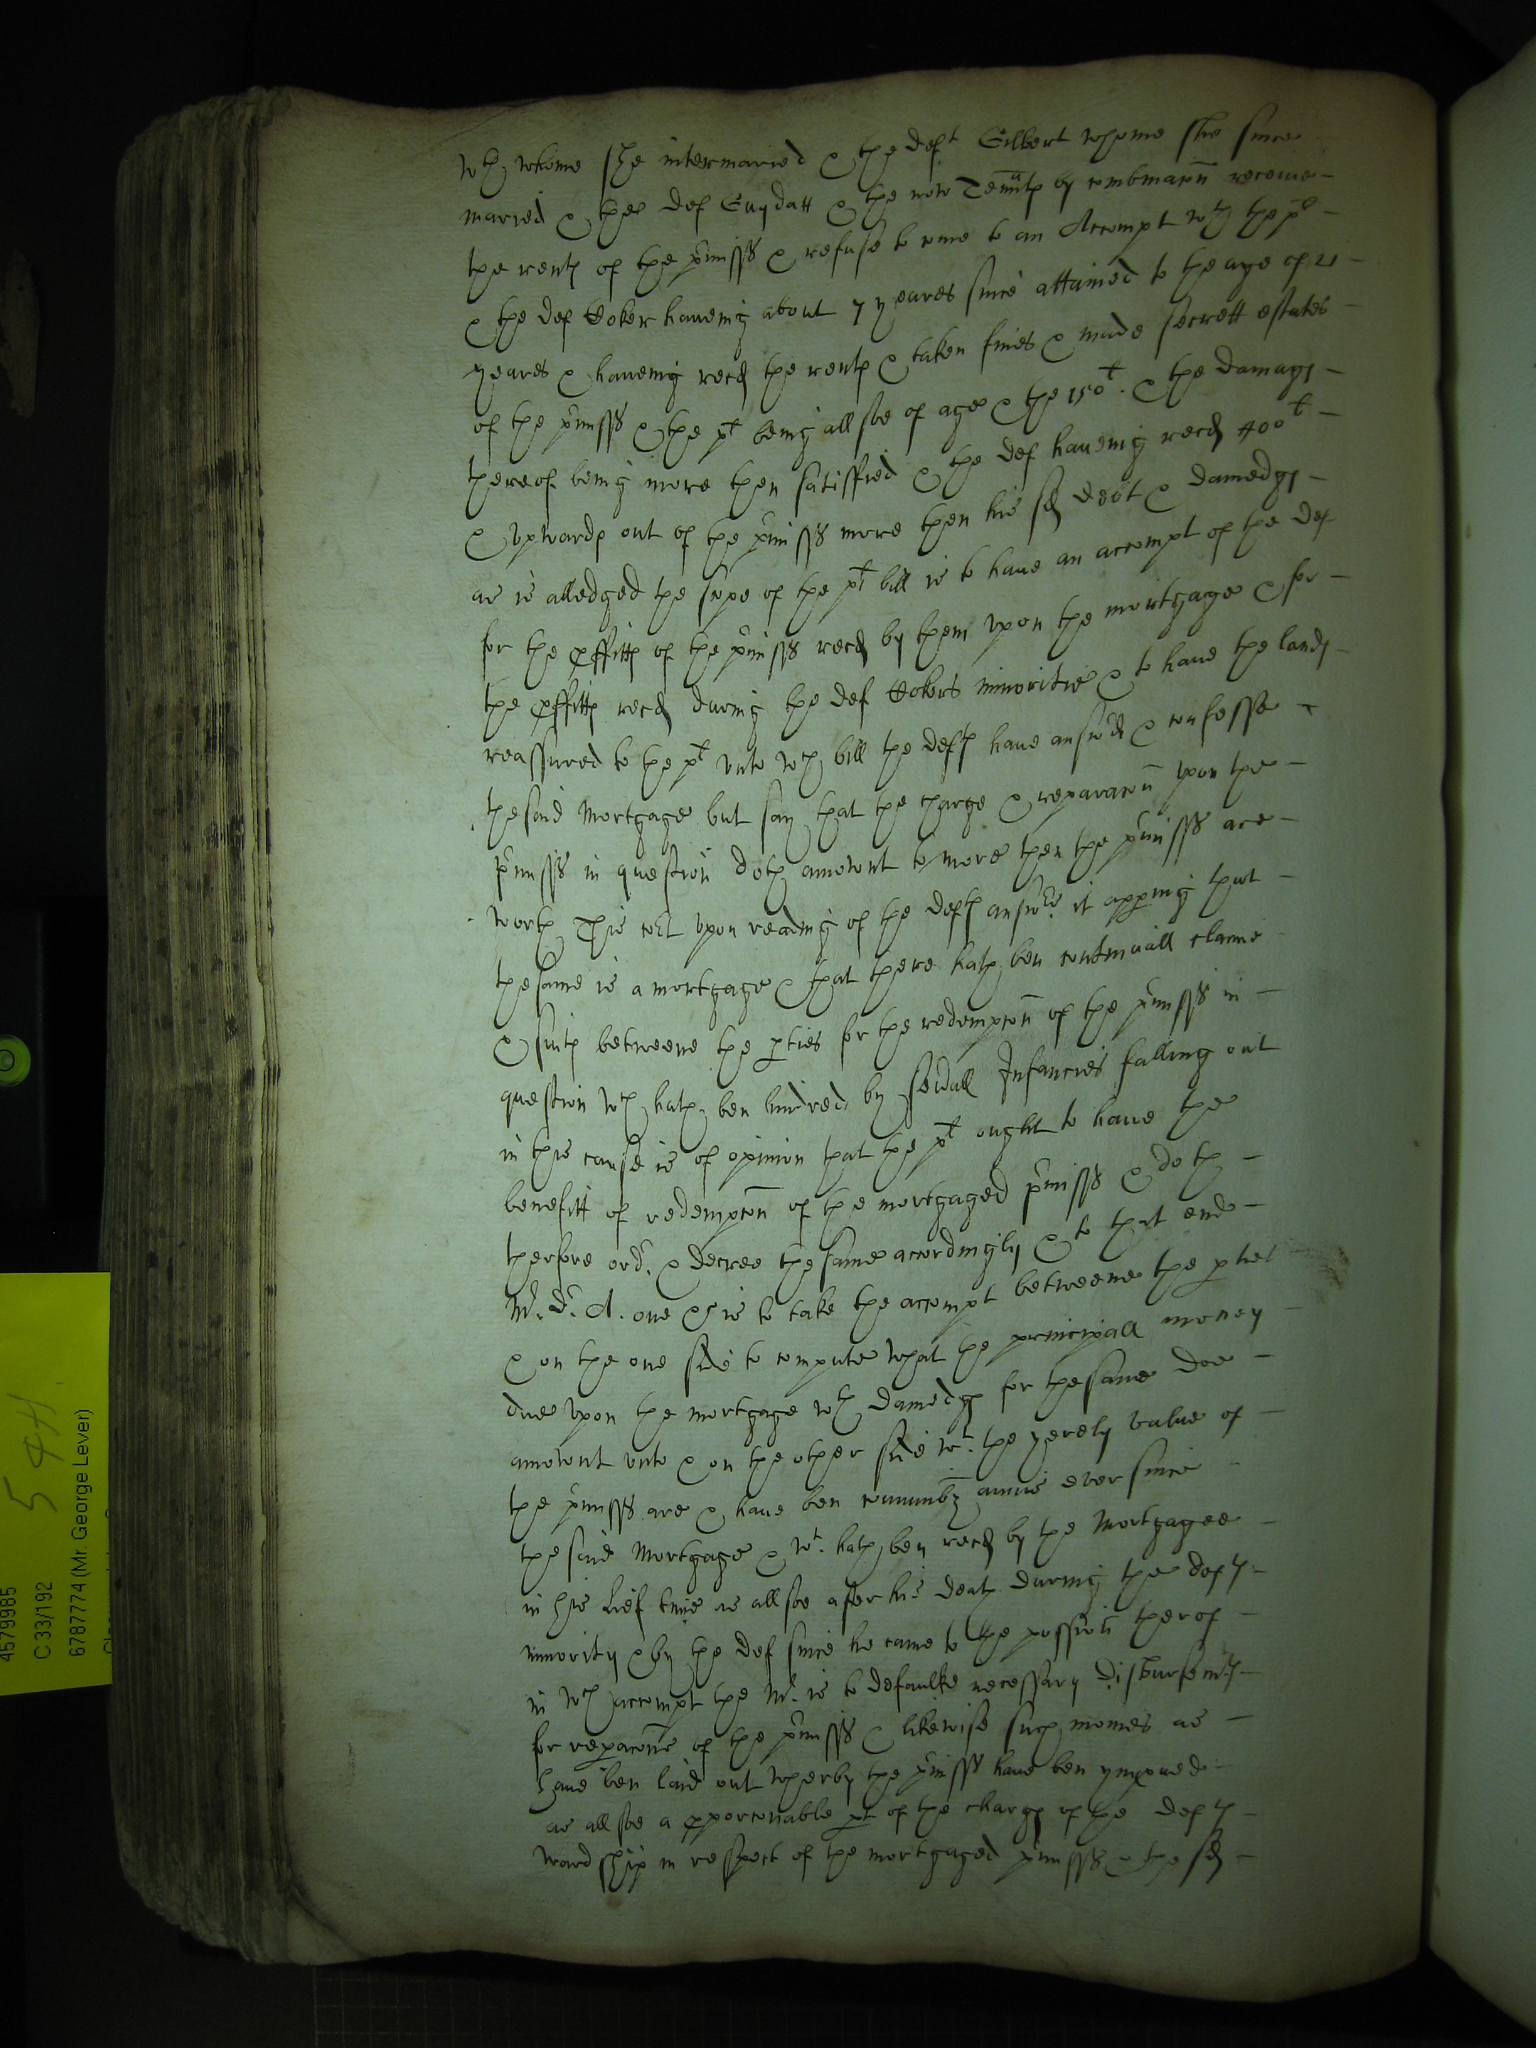 wch whome she intermaried & the deft Gilbert whome she since
maried & the def Guydatt & the now Tennts by combinacon receive
the rents of the pmisss & refuse to come to an Accompt wth the plt
& the def Coker haveing about 7 yeares since attained to the age of 21
yeares & haveing recd the rents & taken fines & made secrett estates
of the pmisss & the plt being allsoe of age & the 150l. & the damags
thereof being more then satisfied & the def haveing recd 400l
& upwards out of the pmisss more then his sd debt & damedgs
as is alledged the scope of the plt bill is to have an accompt of the def
for the pffitts of the pmisss recd by them upon the mortgage & for
the pffitts recd during the def Cokers minoritie & to have the lands
reassured to the plt unto wch bill the defts have answrd & confesse
the said Mortgage but say that the charge & reparacon upon the
pmisss in question doth amownt to more then the pmisss are
worth This Cort upon reading of the defts answre it appering that
the same is a mortgage & that there hath ben continuall clame
& suits betweene the pties for the redempcon of the pmisss in
question wch hath ben hindred by sevall Infancies falling out
in this cause is of opinion that the plt ought to have the
benefitt of redempcon of the mortgaged pmisss & doth
therfore ordr. & decree the same accordingly & to that end
Mr. Dr. A. one &c is to take the accompt betweene the pties
& on the one side to compute what the principall money
due upon the mortgage wth damedgs for the same doe
amownt unto & on the other side wt. the yerely value of
the pmisss are & have ben communibz annis ever since
the said Mortgage & wt. hath ben recd by the Mortgagee
in his lief time as allsoe after his death during the defts
minority & by the def since he came to the possion therof
in wch accompt the Mr. is to defaulke necessary disbursemts
for reparacons of the pmisss & likewise such monies as
have ben laid out wherby the pmisss have ben ymproved
as allsoe a pporconable pt of the chargs of the defts
wardship in respect of the mortgaged pmisss & the sd
4579985
C 33/192
6787774 (Mr. George Lever)